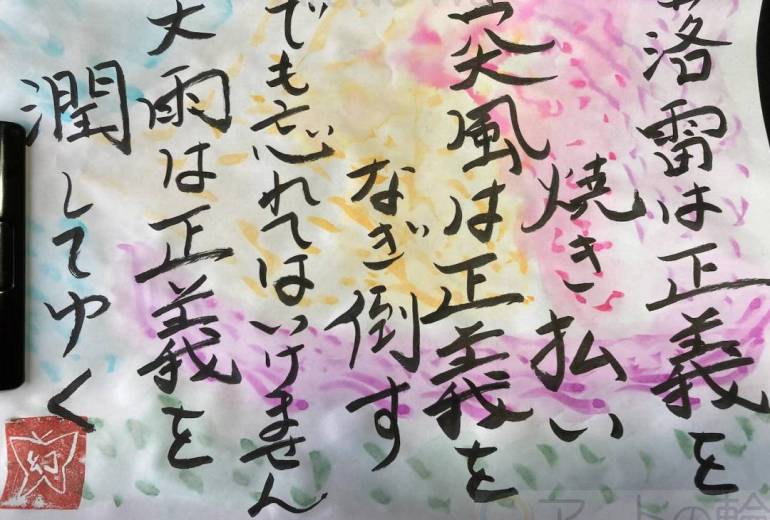 落雷は正義を
焼き払い
突風は正義を
なぎ倒す
でも忘れてはいけません
大雨は正義を
潤してゆく
幻
アートの輪